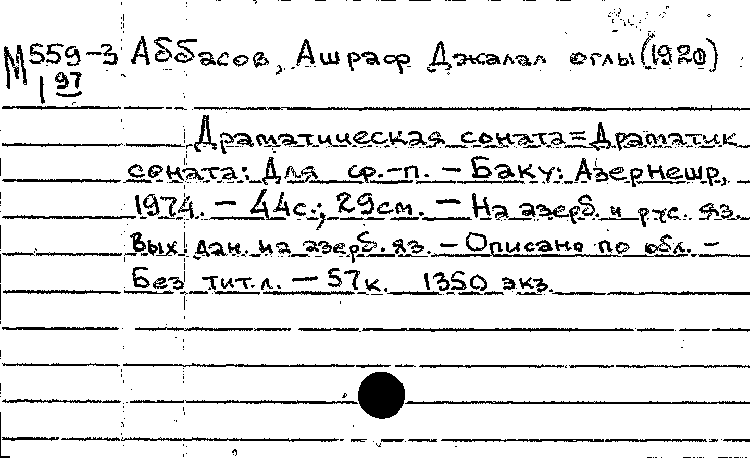 М559-3 Аббасов, Ашраф Джалал оглы (1920)
1 97
Драматическая соната = Драматик
соната: Для ф.-п. — Баку: Азернешр,
1974. — 44с.; 29см. — На азерб. и рус. яз.
Вых. дан. на азерб. яз. — Описано по обл. —
Без тит. л. — 57к. 1350 экз.